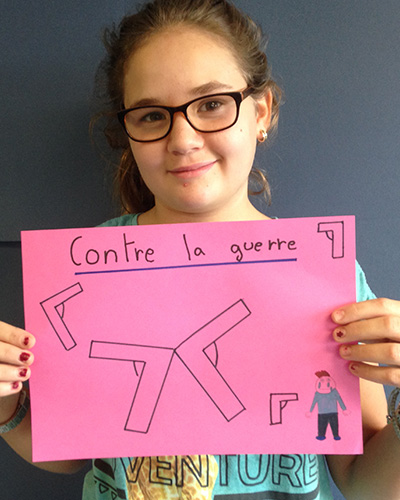 Contre la guerre
VENTURE